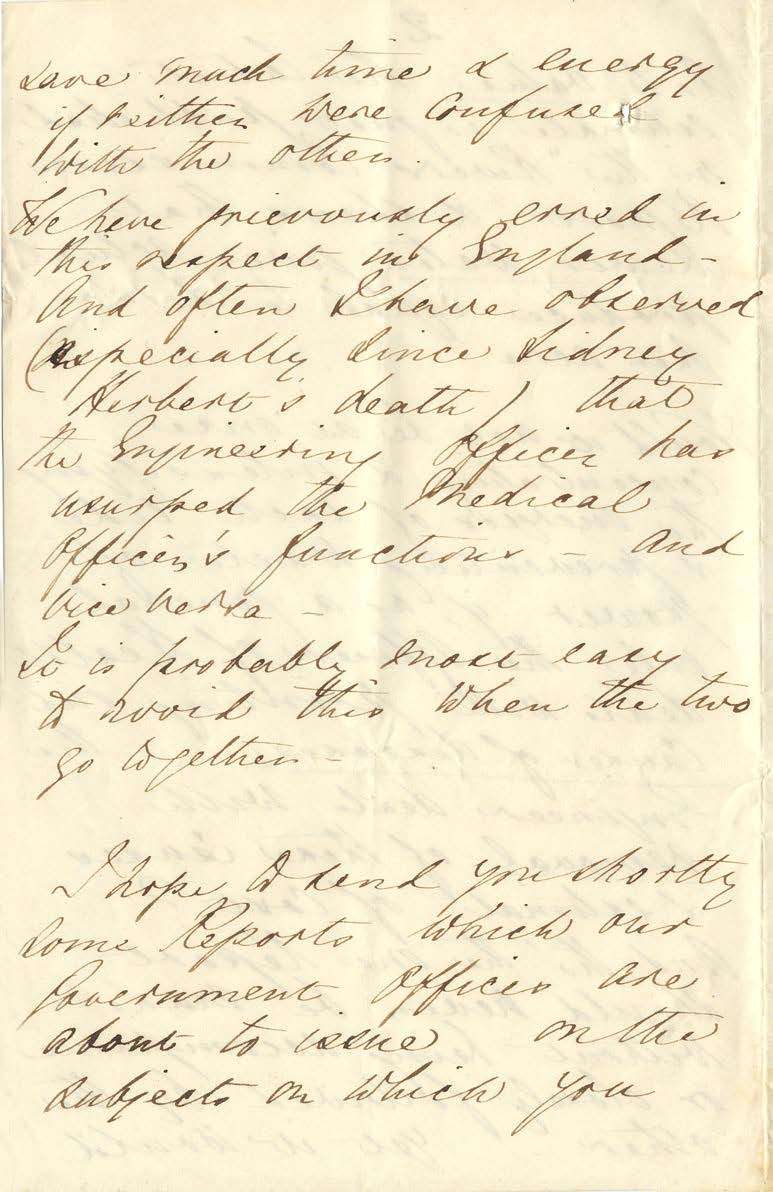 save much time & energy
if either were confused
with the other.
We have grievously erred in
this respect in England -
And often I have observed
(especially since Sidney
Herbert's death) that
the Engineering Officer has
usurped the Medical
Officer's functions - and
vice versa -
It is probably most easy
to avoid this when the two
go together -
I hope to send you shortly
some Reports which our
Government Offices are
about to issue on the
subjects on which you